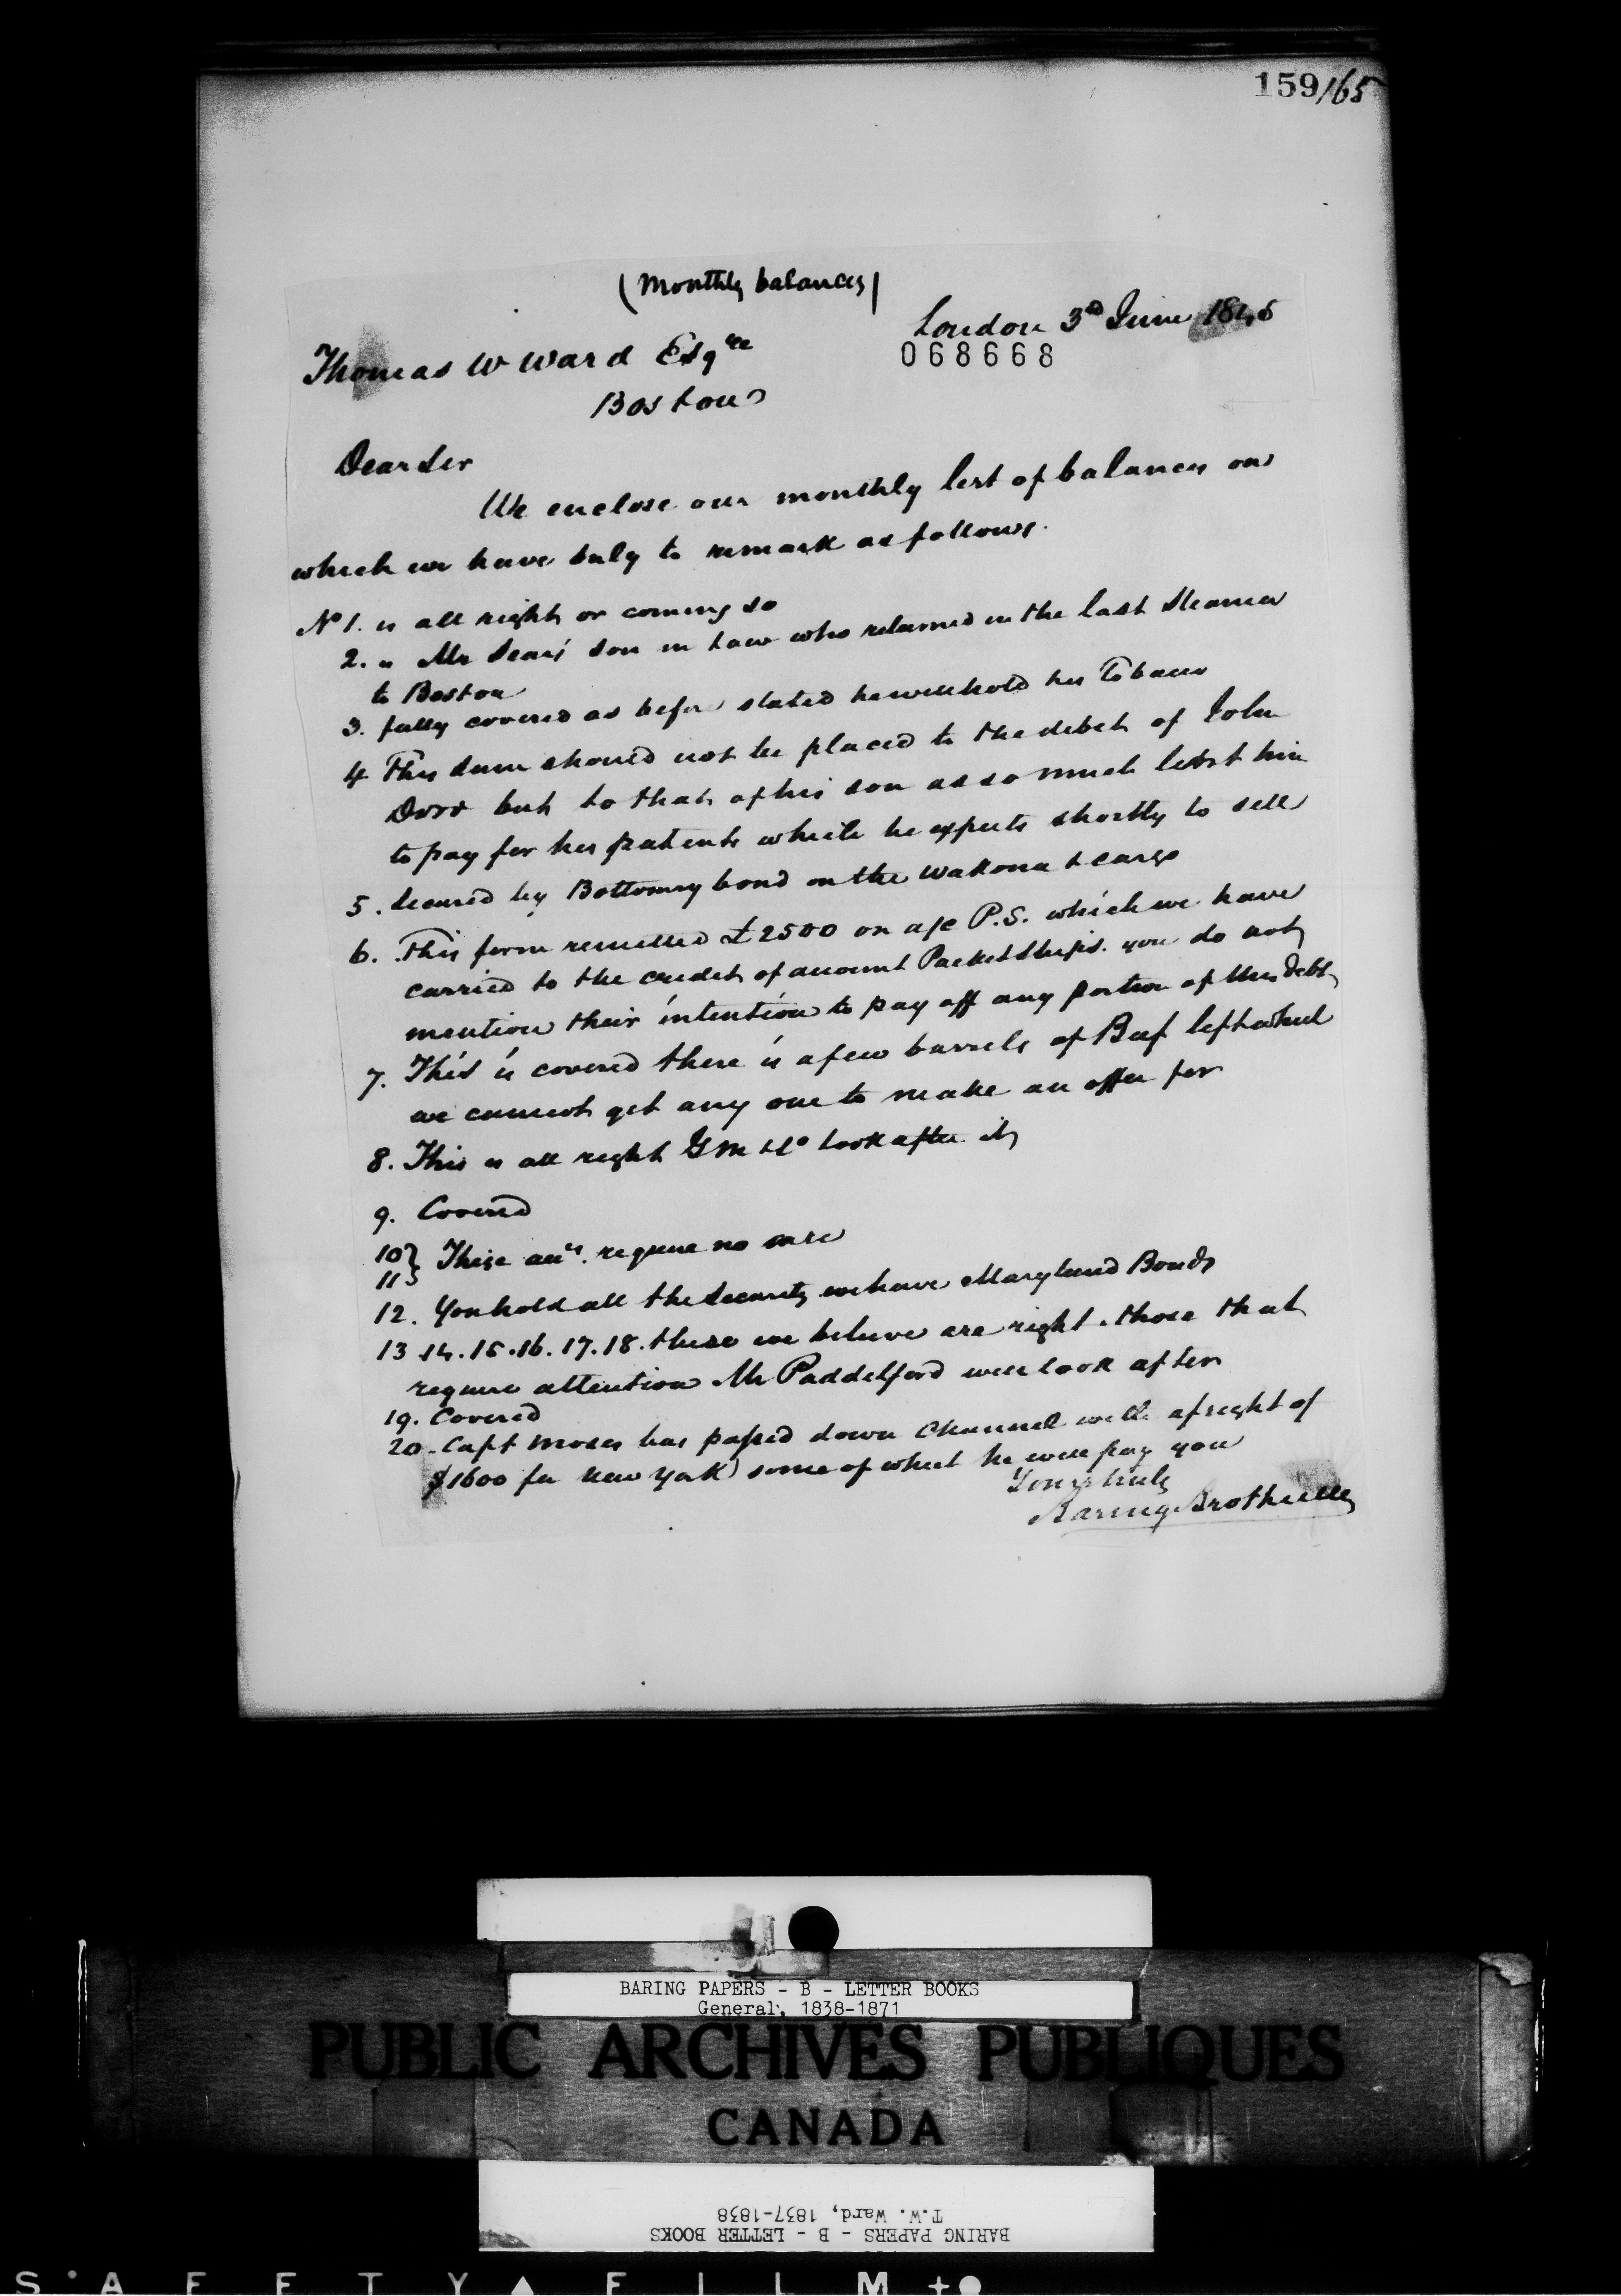 159/165
(Monthly balances)
London 3rd June 1845
068668
Thomas W Ward Esqre
Boston
Dear Sir
We enclose our monthly list of balances on
which we have only to remark as follows.
No 1. is all right or coming so
2. " Mr Sears' son in Law who returned in the last Steamer
to Boston
3. fully covered as before stated he will hold his Tobacco
4 This sum should not be placed to the debit of John
Dorr but to that of his son as so much lent him
to pay for his patents which he expects shortly to sell
5. Secured by Bottomry bond on the Wakona & cargo
6. This firm remitted £2500 on a/c P.S. which we have
carried to the credit of account Packet Ships. you do not
mention their intention to pay off any portion of this debt
7. This is covered there is a few barrels of Beef left which
we cannot get any one to make an offer for
8. This is all right G M & Co look after it
9. Covered
10} These accts. require no care
11}
12. You hold all the Security we have Maryland Bonds
13 .14. 15 .16. 17. 18. these we believe are right. those that
require attention Mr Paddelford will look after
19. Covered
20. Capt Moses has passed down Channel with a freight of
$1600 for New York some of which he will pay you
Yours truly
Baring Brothers & Co
BARING PAPERS - B - LETTER BOOKS
General, 1838-1871
PUBLIC ARCHIVES PUBLIQUES
CANADA
T.W. Ward, 1837-1838
BARING PAPERS - B - LETTER BOOKS
SAFETY FILM